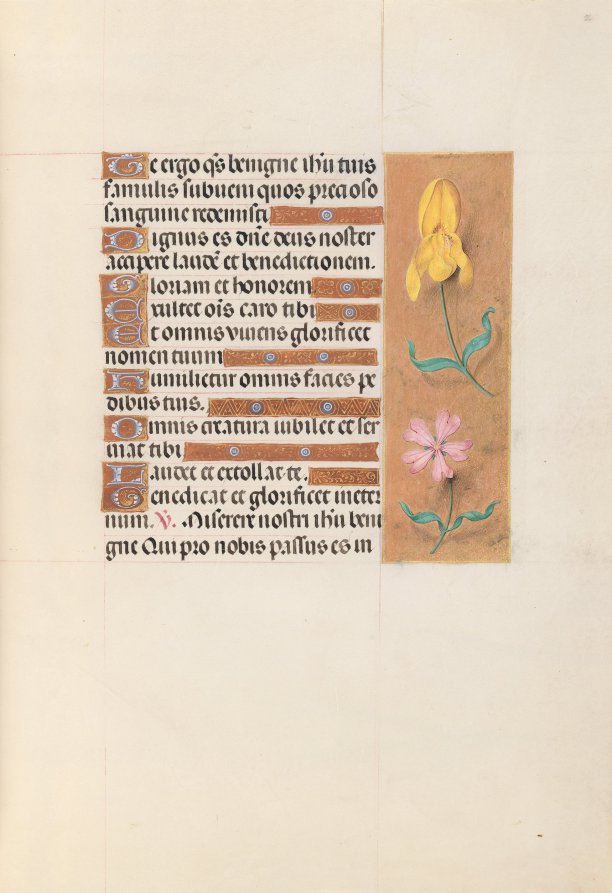 Te ergo q̄s benigne ih̄u tuis
famulis subueni quos precioso
sanguine redemisti
Dignus es dn̄e deus noster
accipere laudē et benedictionem.
Gloriam et honorem
Exultet oīs caro tibi
Et omnis viuens glorificet
nomen tuum
Humilietur omnis facies pe
dibus tuis.
Omnis creatura iubilet et ser
uiat tibi
Laudet et extollat te.
Benedicat et glorificet ineter
num. V. Miserere nostri ih̄u beni
gne Qui pro nobis passus es in